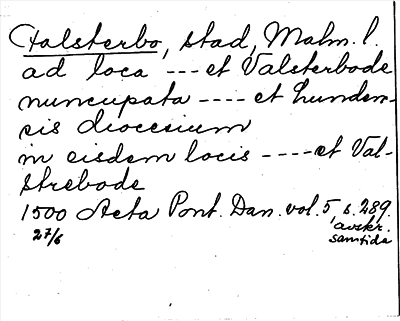 Falsterbo, stad, Malm. l.
ad loca --- et Valsterbode
nuncupata ---- et Lunden-
sis diocesium
in eisdem locis ---- et Val-
strebode
1500 Acta Pont. Dan. vol. 5, s. 289.
27/6 avskr.
samtida